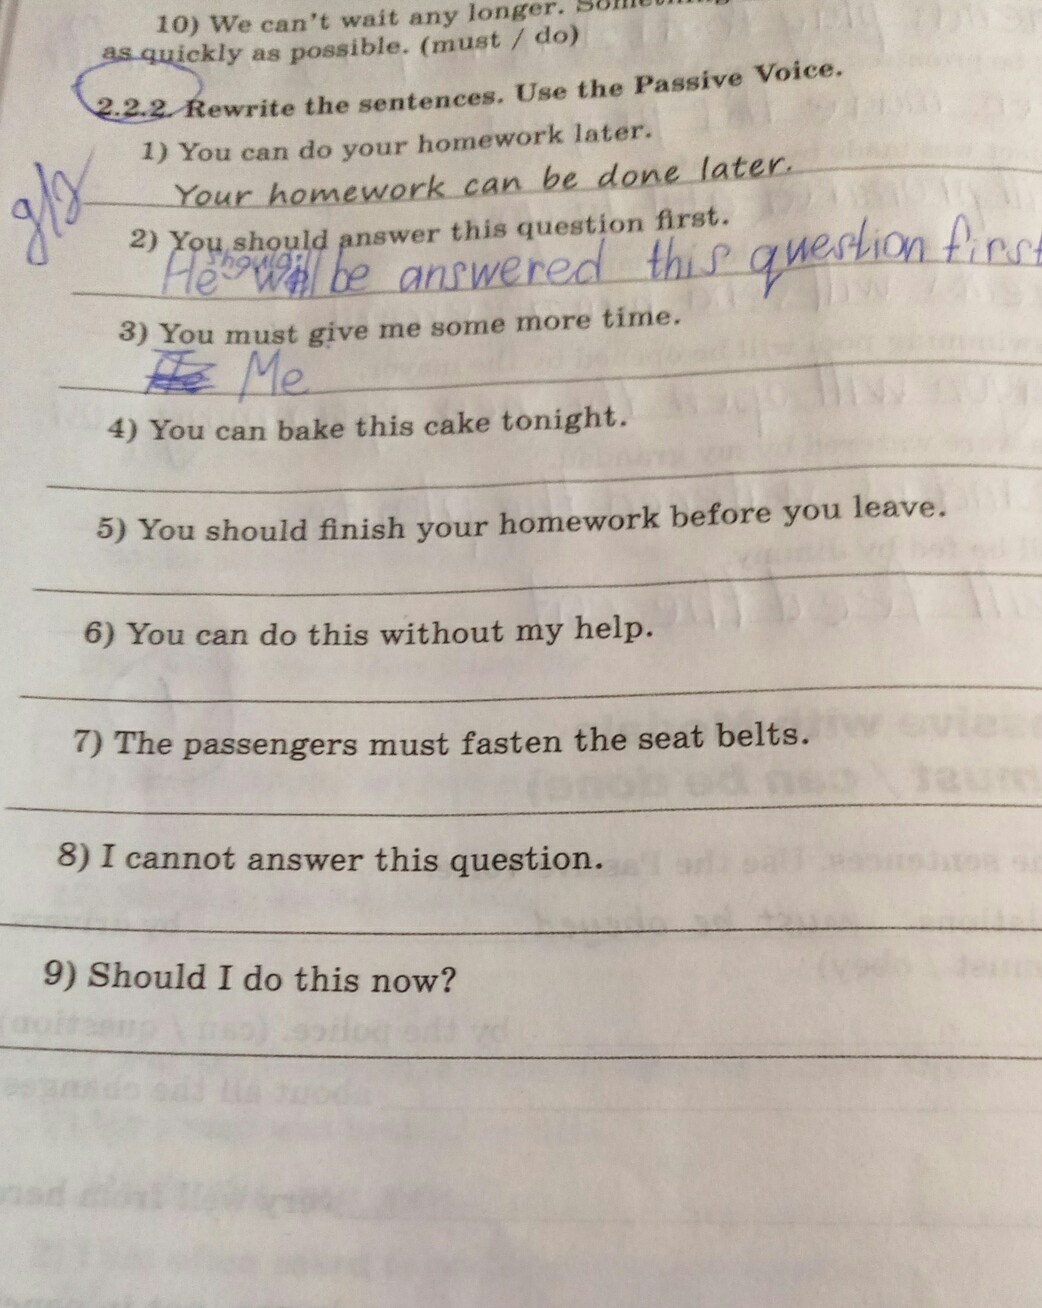 10) We can't wait any longer.
as quickly as possible. (must / do)
2.2.2. Rewrite the sentences. Use the Passive Voice.
1) You can do your homework later.
Your homework can be done later.
2) You should answer this question first.
should
He will be answered this question first
3) You must give me some more time.
Me
4) You can bake this cake tonight.
5) You should finish your homework before you leave.
6) You can do this without my help.
7) The passengers must fasten the seat belts.
8) I cannot answer this question.
9) Should I do this now?